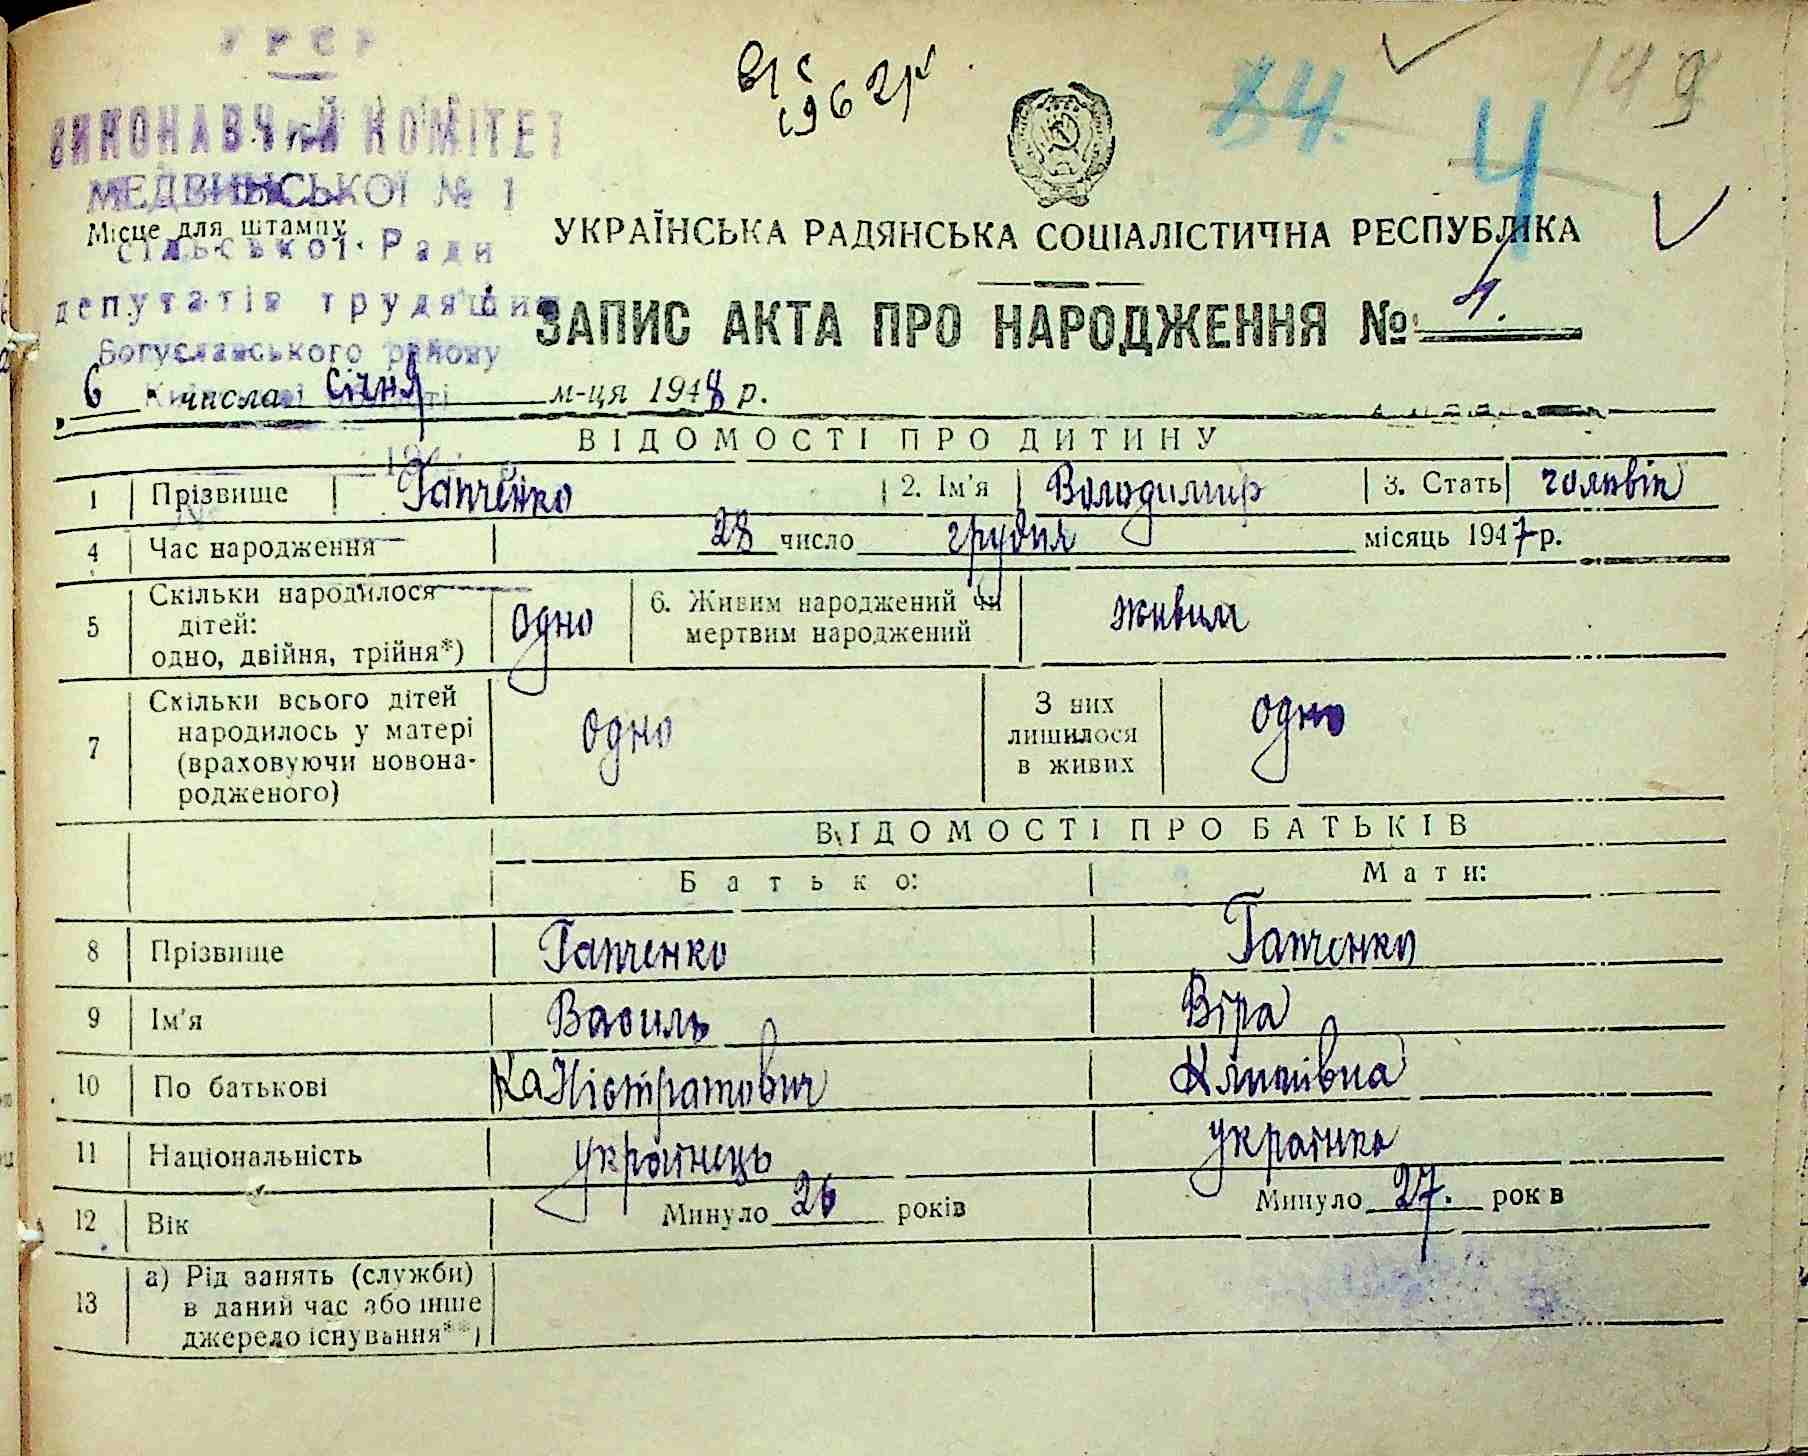 УРСР
ВИКОНАВЧИЙ КОМІТЕТ
МЕДВИНСЬКОЇ № 1
Місце для штампу
сільської Ради
депутатів трудящих
Богуславського району
Київської області
1962
84.
4
199
УКРАЇНСЬКА РАДЯНСЬКА СОЦІАЛІСТИЧНА РЕСПУБЛІКА
ЗАПИС АКТА ПРО НАРОДЖЕННЯ № 4.
6 числа січня м-ця 1948 р.
ВІДОМОСТІ ПРО ДИТИНУ
1 Прізвище Гапченко 2. Ім'я Володимир 3. Стать
4 Час народження 28 число грудня місяць 1947 р.
5 Скільки народилося дітей: одно, двійня, трійня*) одно 6. Живим народжений чи мертвим народжений живим
7 Скільки всього дітей народилось у матері (враховуючи новонародженого) одно З них лишилося в живих одно
ВІДОМОСТІ ПРО БАТЬКІВ
Батько: Мати:
8 Прізвище Гапченко Гапченко
9 Ім'я Василь Віра
10 По батькові Калістратович
11 Національність українець українка
12 Вік Минуло 26 років Минуло 27. рок в
13 а) Рід занять (служби) в даний час або інше джерело існування**)